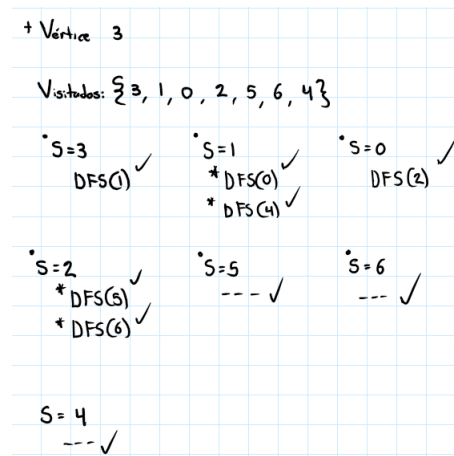 + Vértice 3
Visitados: {3, 1, 0, 2, 5, 6, 4}
• S=3
DFS(1) ✓
• S=1
* DFS(0) ✓
* DFS(4) ✓
• S=0
DFS(2) ✓
• S=2
* DFS(5) ✓
* DFS(6) ✓
• S=5
--- ✓
• S=6
--- ✓
S = 4
--- ✓